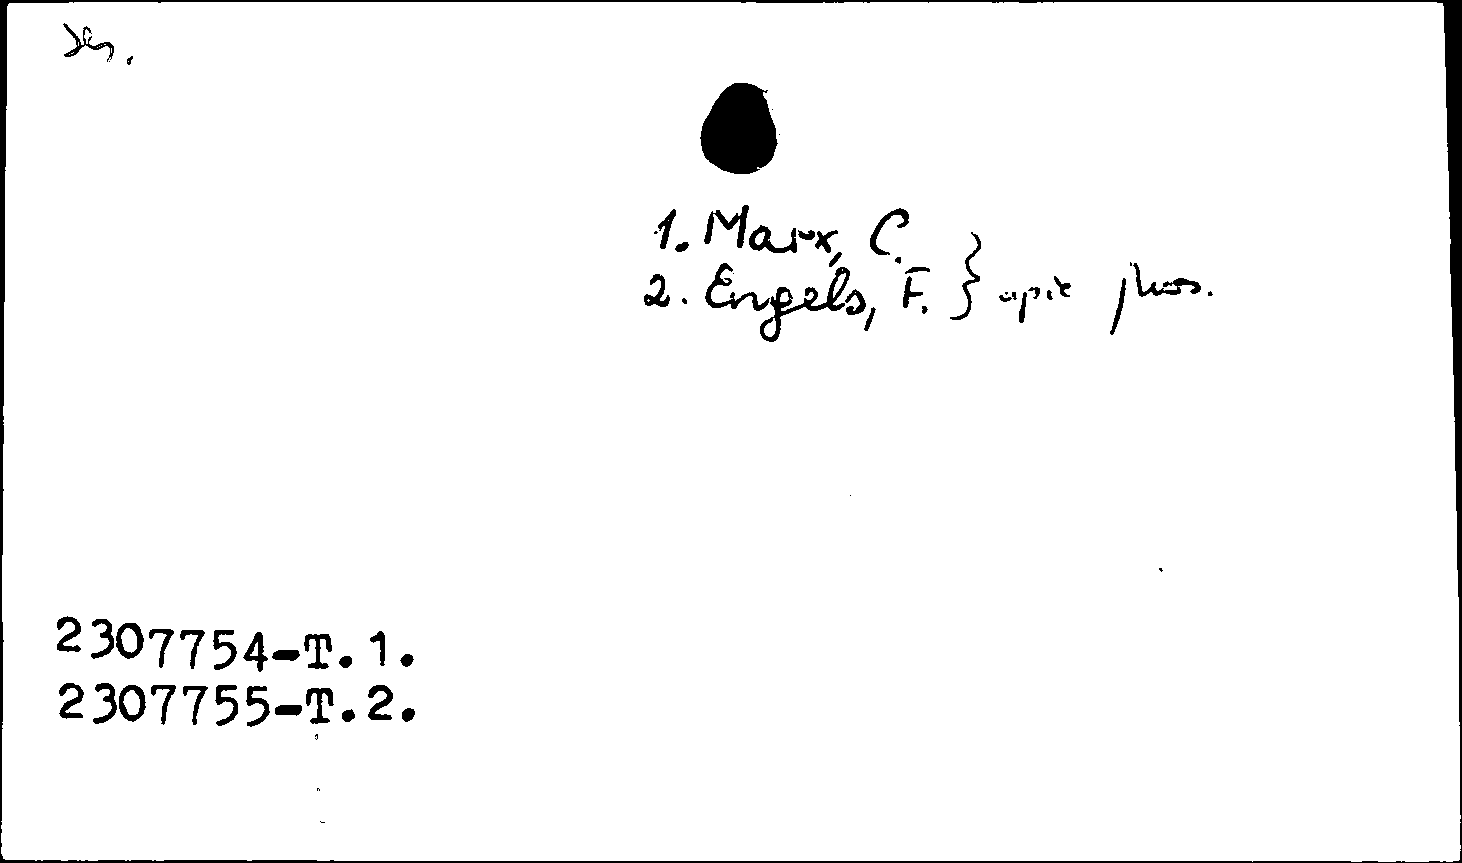 1. Marx, C.
2. Engels, F. } apie juos.
2307754-T.1.
2307755-T.2.